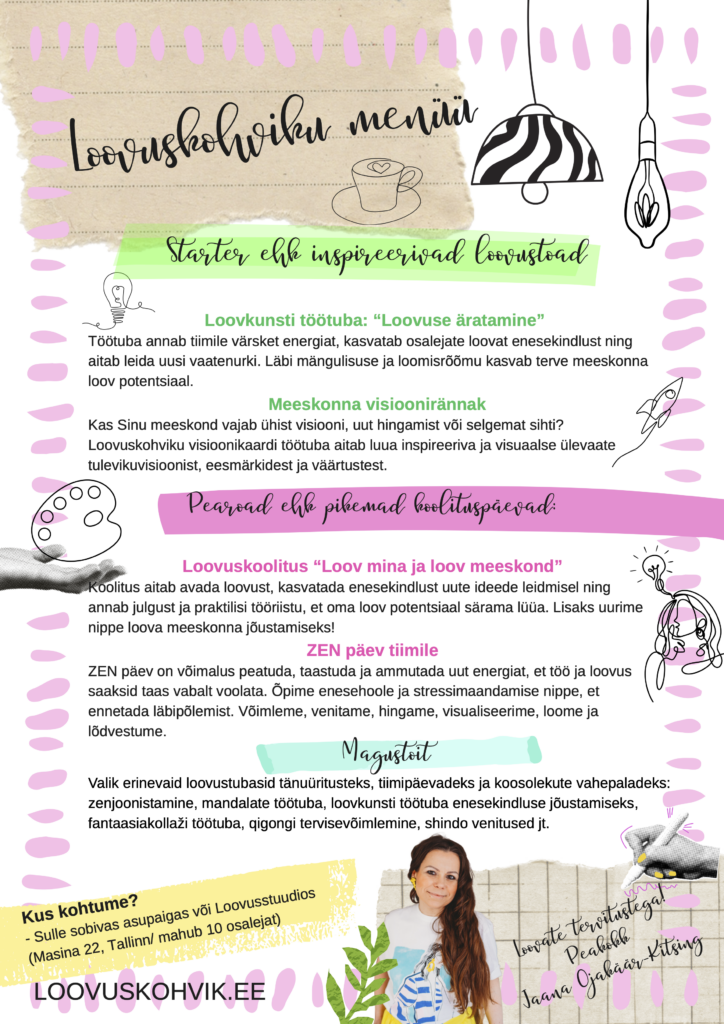 Loovuskohviku menüü
Starter ehk inspireerivad loovustoad
Loovkunsti töötuba: “Loovuse äratamine”
Töötuba annab tiimile värsket energiat, kasvatab osalejate loovat enesekindlust ning
aitab leida uusi vaatenurki. Läbi mängulisuse ja loomisrõõmu kasvab terve meeskonna
loov potentsiaal.
Meeskonna visioonirännak
Kas Sinu meeskond vajab ühist visiooni, uut hingamist või selgemat sihti?
Loovuskohviku visioonikaardi töötuba aitab luua inspireeriva ja visuaalse ülevaate
tulevikuvisioonist, eesmärkidest ja väärtustest.
Pearoad ehk pikemad koolituspäevad:
Loovuskoolitus “Loov mina ja loov meeskond”
Koolitus aitab avada loovust, kasvatada enesekindlust uute ideede leidmisel ning
annab julgust ja praktilisi tööriistu, et oma loov potentsiaal särama lüüa. Lisaks uurime
nippe loova meeskonna jõustamiseks!
ZEN päev tiimile
ZEN päev on võimalus peatuda, taastuda ja ammutada uut energiat, et töö ja loovus
saaksid taas vabalt voolata. Õpime enesehoole ja stressimaandamise nippe, et
ennetada läbipõlemist. Võimleme, venitame, hingame, visualiseerime, loome ja
lõdvestume.
Magustoit
Valik erinevaid loovustubasid tänuüritusteks, tiimipäevadeks ja koosolekute vahepaladeks:
zenjoonistamine, mandalate töötuba, loovkunsti töötuba enesekindluse jõustamiseks,
fantaasiakollaži töötuba, qigongi tervisevõimlemine, shindo venitused jt.
Kus kohtume?
- Sulle sobivas asupaigas või Loovusstuudios
(Masina 22, Tallinn/ mahub 10 osalejat)
LOOVUSKOHVIK.EE
Loovate tervitustega!
Peakokk
Jaana Ojakäär-Kitsing